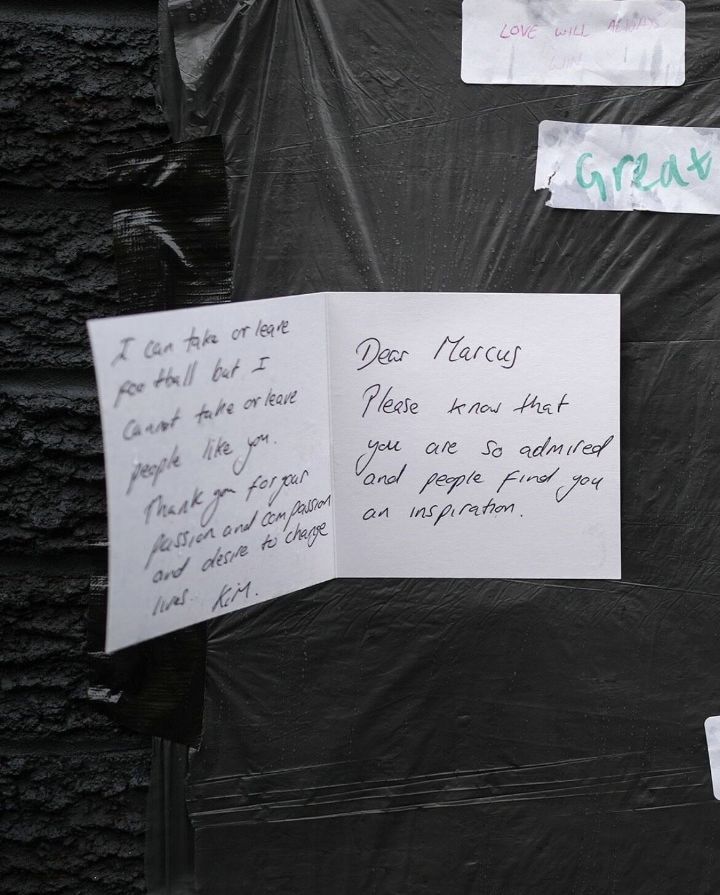 LOVE WILL ALWAYS
WIN
Great
Dear Marcus
Please know that
you are so admired
and people find you
an inspiration.
I can take or leave
football but I
cannot take or leave
people like you.
Thank you for your
passion and compassion
and desire to change
lives. Kim.